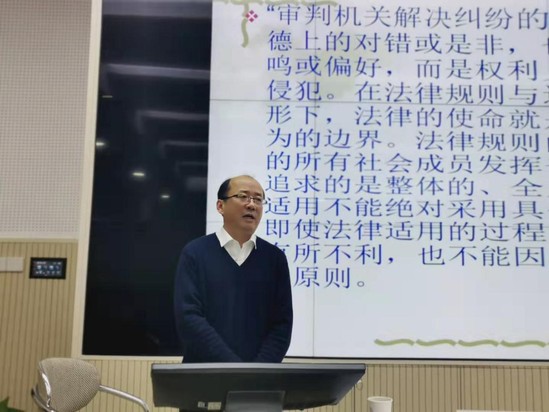 “审判机关解决纠纷的
德上的对错或是非，
鸣或偏好，而是权利
侵犯。在法律规则与
形下，法律的使命就
为的边界。法律规则
的所有社会成员发挥
追求的是整体的、全
适用不能绝对采用具
即使法律适用的过程
所不利，也不能因
原则。